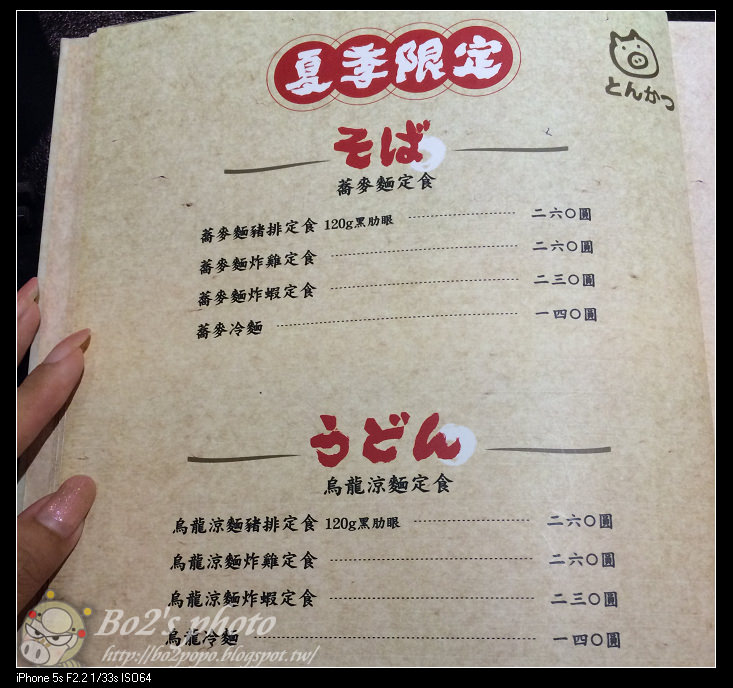 夏季限定
とんかつ
そば
蕎麥麵定食
蕎麥麵豬排定食 120g黑肋眼 二六〇圓
蕎麥麵炸雞定食 二六〇圓
蕎麥麵炸蝦定食 二三〇圓
蕎麥冷麵 一四〇圓
うどん
烏龍涼麵定食
烏龍涼麵豬排定食 120g黑肋眼 二六〇圓
烏龍涼麵炸雞定食 二六〇圓
烏龍涼麵炸蝦定食 二三〇圓
烏龍冷麵 一四〇圓
Bo2's photo
http://bo2popo.blogspot.tw/
iPhone 5s F2.2 1/33s ISO64